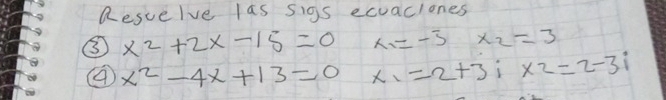 Resuelve las sigs ecuaciones
③ x2 +2x -15 =0 x1=-3 x2=3
④ x2 -4x +13=0 x1 =2+3i x2=2-3i